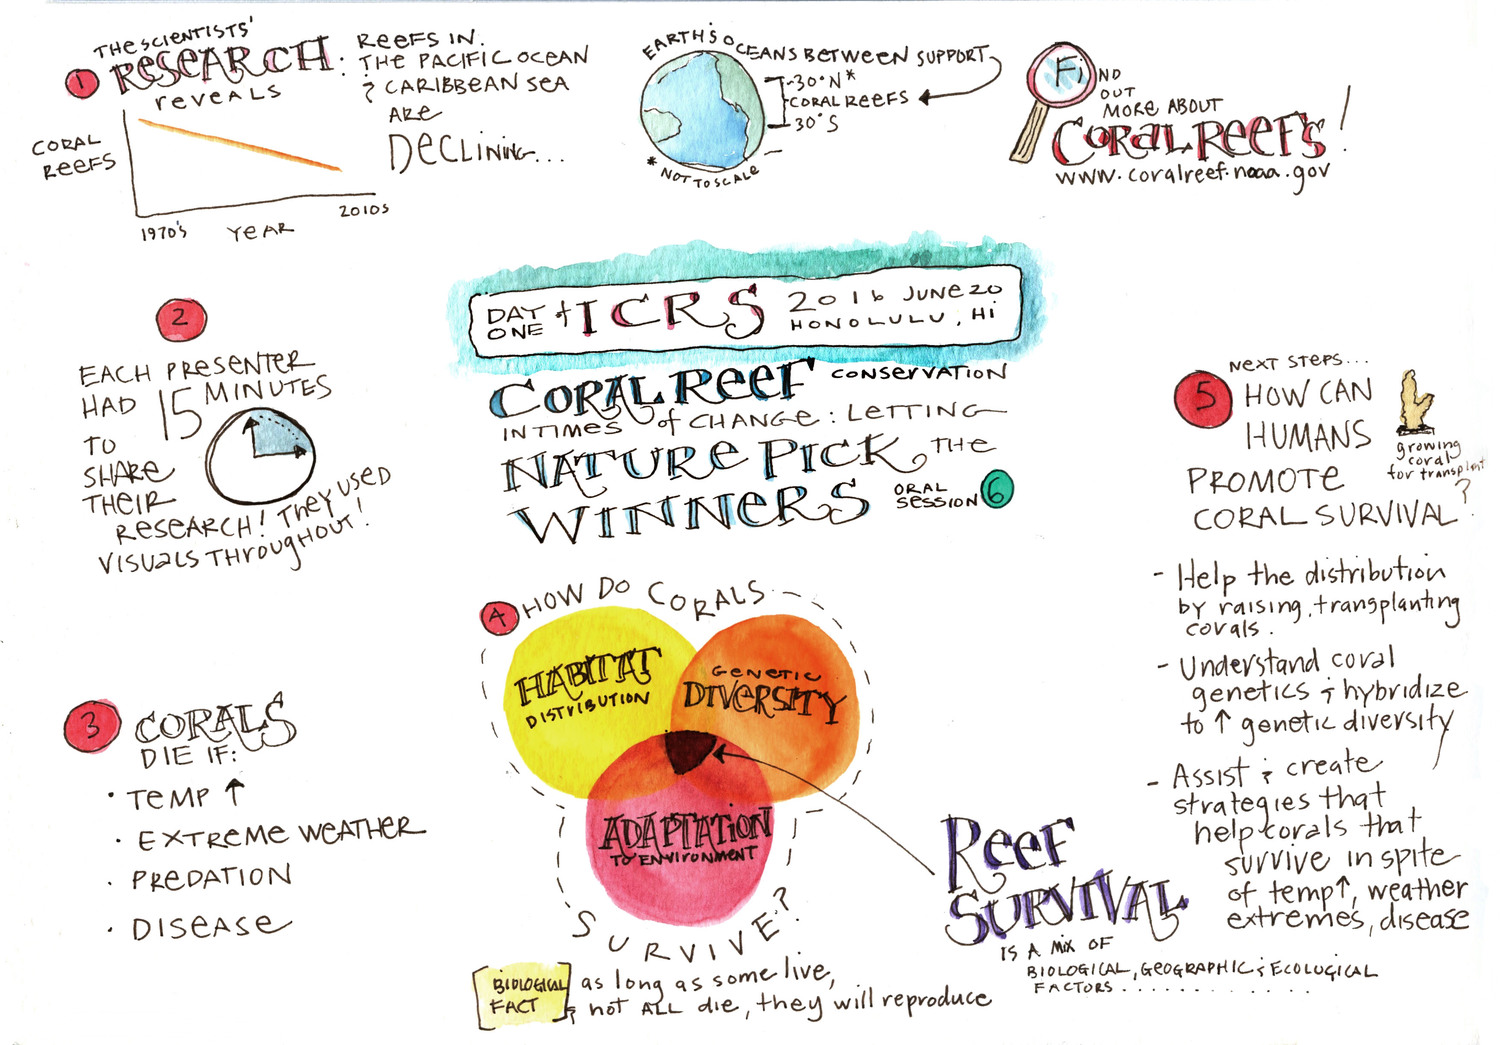 1
THE SCIENTISTS'
RESEARCH:
REVEALS
REEFS IN
THE PACIFIC OCEAN
& CARIBBEAN SEA
ARE
DECLINING...
CORAL
REEFS
1970's
YEAR
2010s
EARTH'S OCEANS BETWEEN SUPPORT
30°N*
CORAL REEFS
30°S
* NOT TO SCALE
FIND
OUT
MORE ABOUT
CORAL REEFS!
www.coralreef.noaa.gov
DAY
ONE
of ICRS
2016 JUNE 20
HONOLULU, HI
CORAL REEF CONSERVATION
IN TIMES of CHANGE: LETTING
NATURE PICK THE
WINNERS
ORAL
SESSION 6
2
EACH PRESENTER
HAD 15 MINUTES
TO
SHARE
THEIR
RESEARCH! THEY USED
VISUALS THROUGHOUT!
3
CORALS
DIE IF:
· TEMP ↑
· EXTREME WEATHER
· PREDATION
· DISEASE
4
HOW DO CORALS
HABITAT
DISTRIBUTION
GENETIC
DIVERSITY
ADAPTATION
TO ENVIRONMENT
SURVIVE?
BIOLOGICAL
FACT
as long as some live,
& not ALL die, they will reproduce
REEF
SURVIVAL
IS A MIX OF
BIOLOGICAL, GEOGRAPHIC & ECOLOGICAL
FACTORS.............
5
NEXT STEPS...
HOW CAN
HUMANS
PROMOTE
CORAL SURVIVAL?
growing
coral
for transplant
- Help the distribution
by raising, transplanting
corals.
- Understand coral
genetics & hybridize
to ↑ genetic diversity
- Assist & create
strategies that
help corals that
survive in spite
of temp↑, weather
extremes, disease